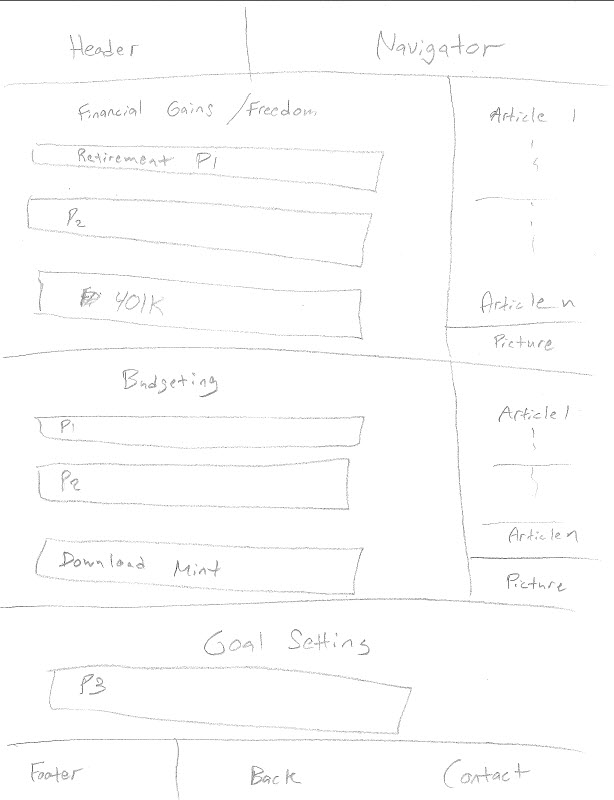 Header
Navigator
Financial Gains / Freedom
Retirement P1
P2
401K
Article 1
Article n
Picture
Budgeting
P1
P2
Download Mint
Article 1
Article n
Picture
Goal Setting
P3
Footer
Back
Contact